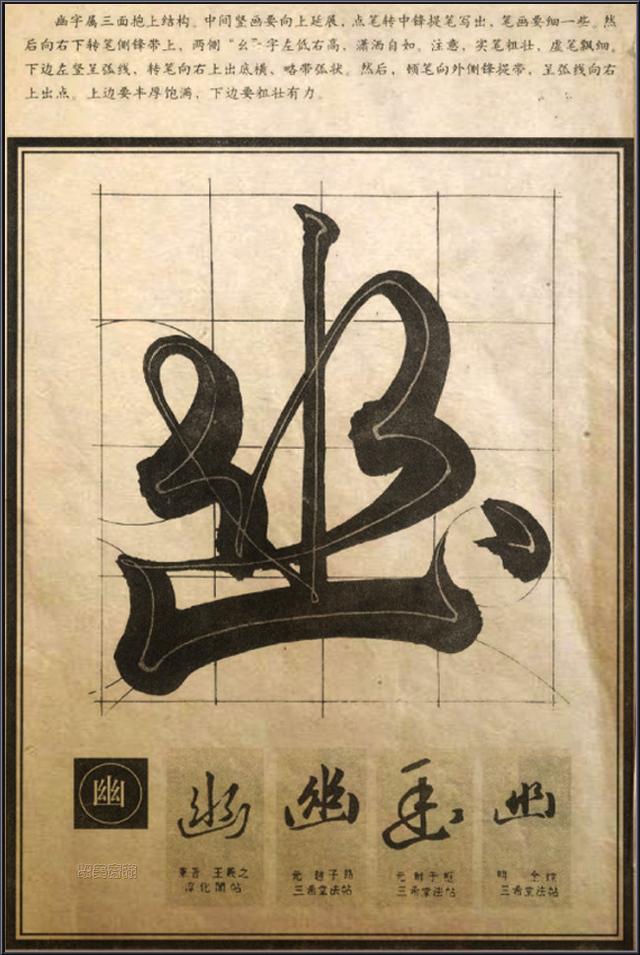 幽字属三面抱上结构。中间竖画要向上延展，点笔转中锋提笔写出，笔画要细一些。然
后向右下转笔侧锋带上，两侧“幺”字左低右高，潇洒自如。注意，实笔粗壮，虚笔飘细。
下边左竖呈弧线，转笔向右上出底横，略带弧状。然后，顿笔向外侧锋提带，呈弧线向右
上出点。上边要丰厚饱满，下边要粗壮有力。
幽
幽
幽 幽 幽 幽
东晋 王羲之
淳化阁帖
元 赵子昂
三希堂法帖
元 鲜于枢
三希堂法帖
明
三希堂法帖